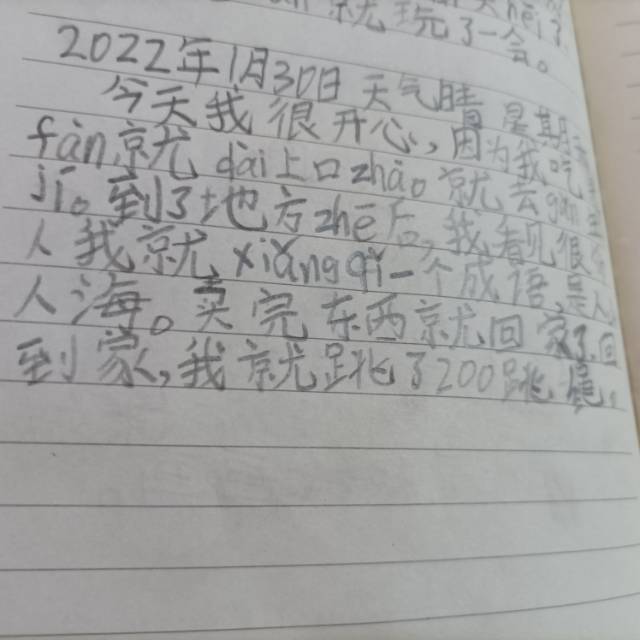 就 了一会。
2022年1月30日 天气晴 星期
今天我很开心，因为我
fàn就 dài上口zhào。就去
jí。到了地方zhē后，我看见很
人我就xiǎng qǐ一个成语，
人海。卖完东西就回家了回
到家，我就跳了200跳绳，